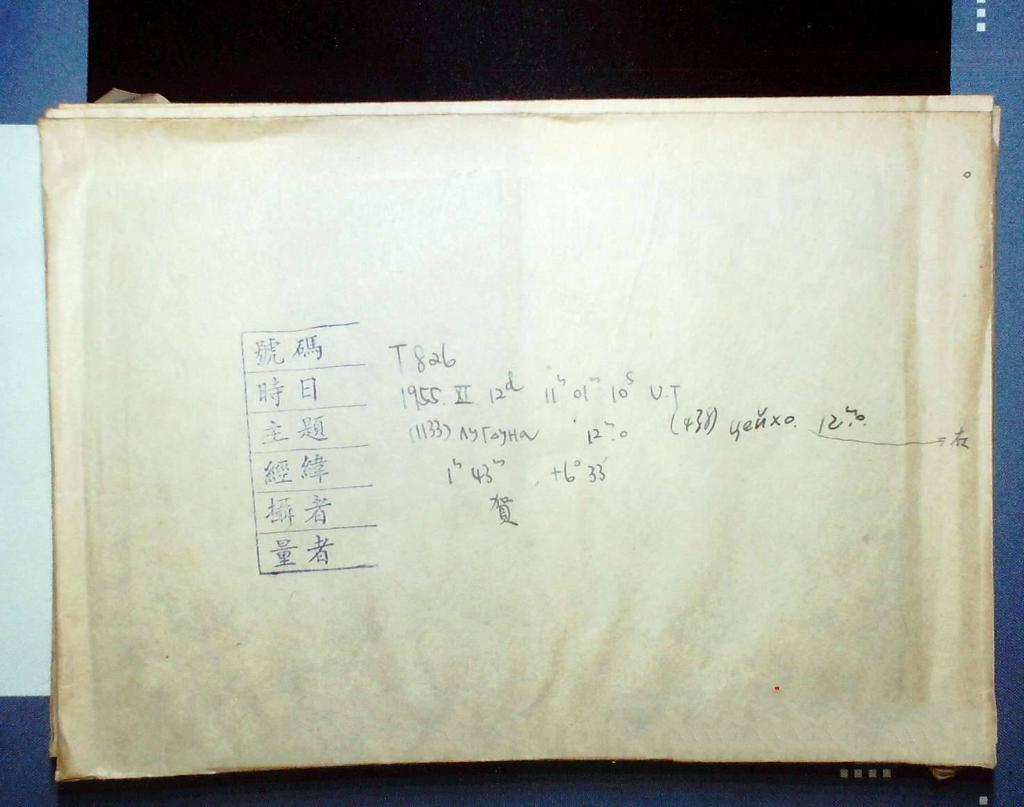 號碼 T 826
時日 1955. XII 12ᵈ 11ʰ 01ᵐ 10ˢ U.T
主題 (1133) Лугдуна 12ᵐ.0 (438) цейхо. 12ᵐ.0. → 右
經緯 1ʰ 43ᵐ , +6° 33′
攝者 賀
量者